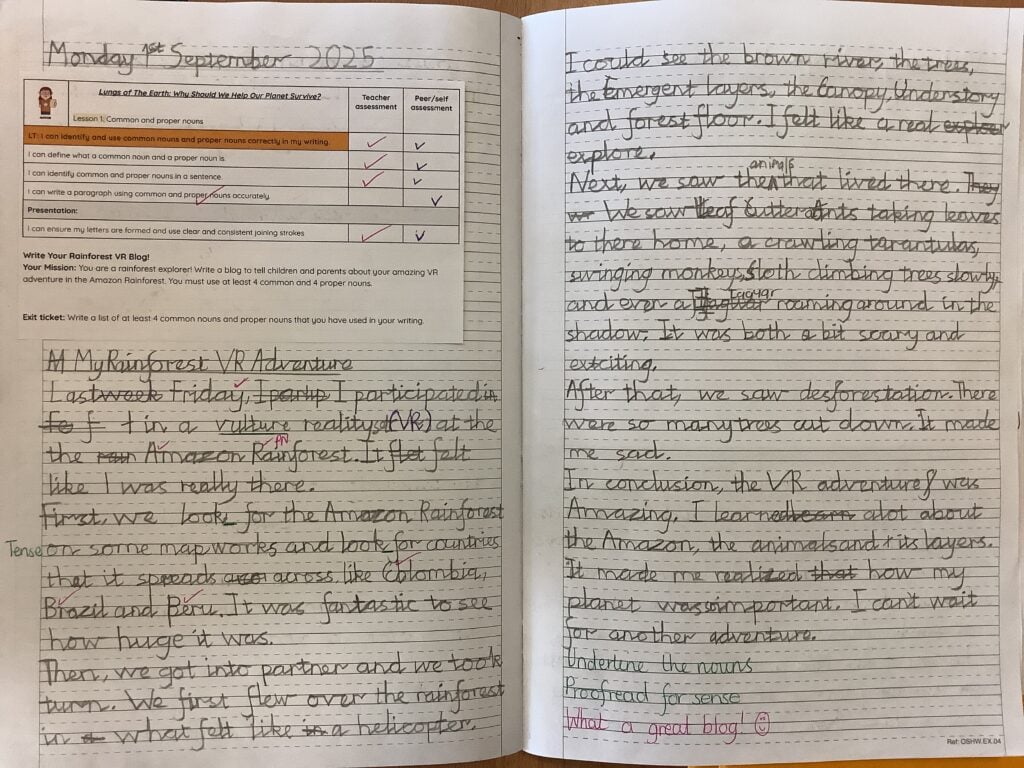 Monday 1st September 2025
Lungs of The Earth: Why Should We Help Our Planet Survive?
Teacher assessment
Peer/self assessment
Lesson 1: Common and proper nouns
LT: I can identify and use common nouns and proper nouns correctly in my writing.
I can define what a common noun and a proper noun is.
I can identify common and proper nouns in a sentence.
I can write a paragraph using common and proper nouns accurately.
Presentation:
I can ensure my letters are formed and use clear and consistent joining strokes
Write Your Rainforest VR Blog!
Your Mission: You are a rainforest explorer! Write a blog to tell children and parents about your amazing VR
adventure in the Amazon Rainforest. You must use at least 4 common and 4 proper nouns.
Exit ticket: Write a list of at least 4 common nouns and proper nouns that you have used in your writing.
My Rainforest VR Adventure
Last week Friday, I partip I participated in
to f t in a vulture reality (VR) at the
the rain Amazon Rainforest. It felt
like I was really there.
First, we look for the Amazon Rainforest
Tense
on some map works and look for countries
that it spreads across like Colombia,
Brazil and Peru. It was fantastic to see
how huge it was.
Then, we got into partner and we took
turn. We first flew over the rainforest
in a what felt like in a helicopter.
I could see the brown river, the trees,
the Emergent layers, the Canopy, Understory
and forest floor. I felt like a real
explore.
Next, we saw the animals that lived there. They
We saw leaf Cutter ants taking leaves
to there home, a crawling tarantulas,
swinging monkeys, Sloth climbing trees slowly,
and even a Jaguar roaming around in the
shadow. It was both a bit scary and
exciting.
After that, we saw desforestation. There
were so many trees cut down. It made
me sad.
In conclusion, the VR adventure was
Amazing. I learned alot about
the Amazon, the animals and its layers.
It made me realized that how my
planet was important. I can't wait
for another adventure.
Underline the nouns
Proofread for sense
What a great blog!
Ref: OSHW.EX.04